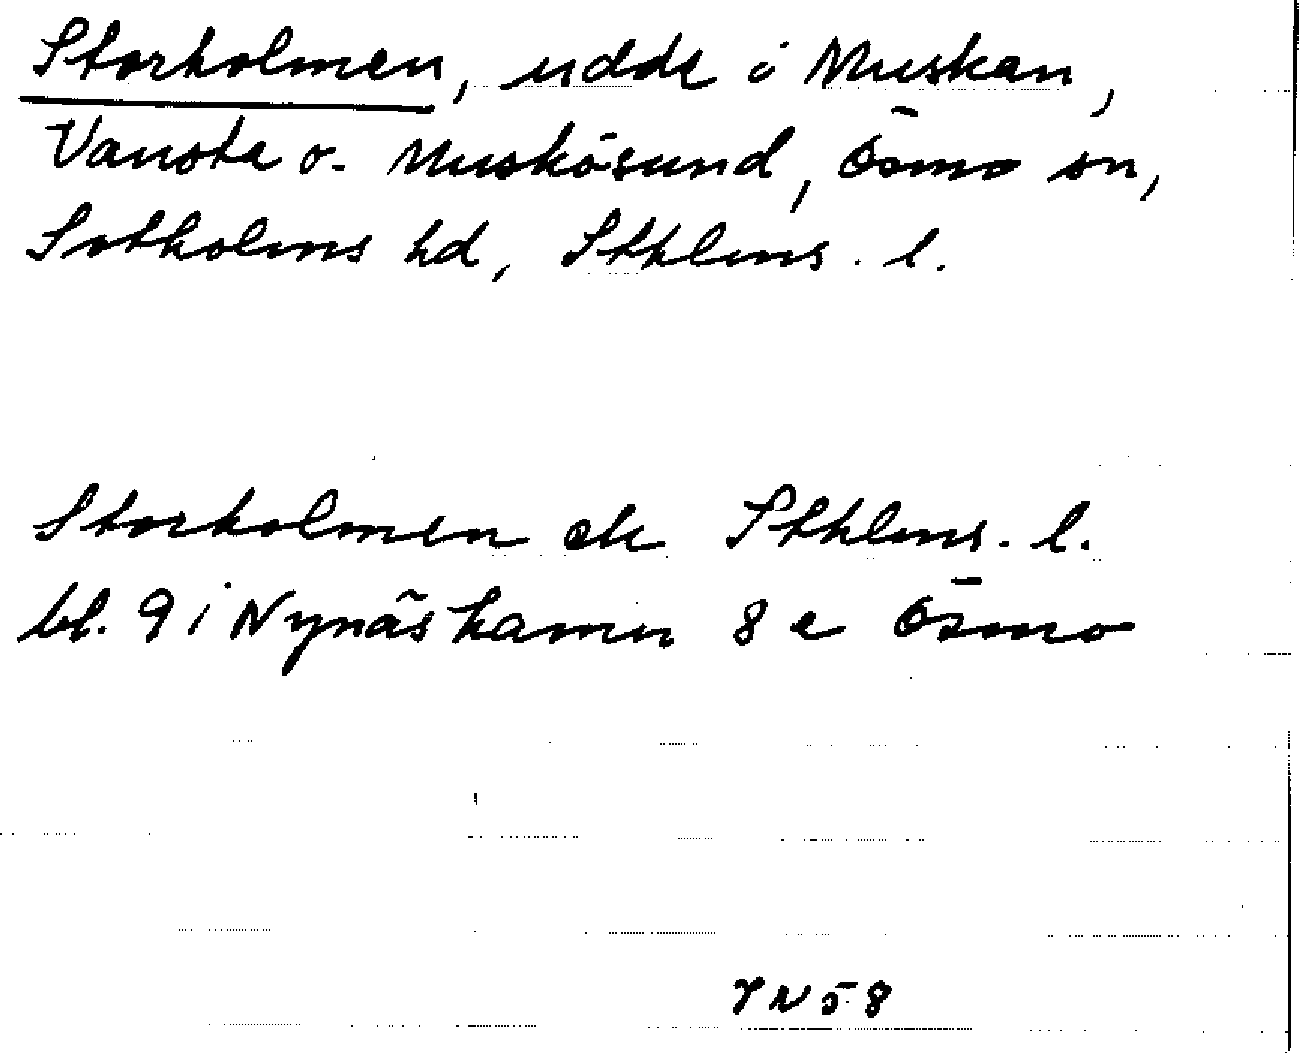 Storholmen, udde i Muskan,
Vansta o. Muskösund, Ösmo sn,
Sotholms hd, Sthlms. l.
Storholmen ek Sthlms. l.
bl. 9 i Nynäshamn 8 e Ösmo
YN58